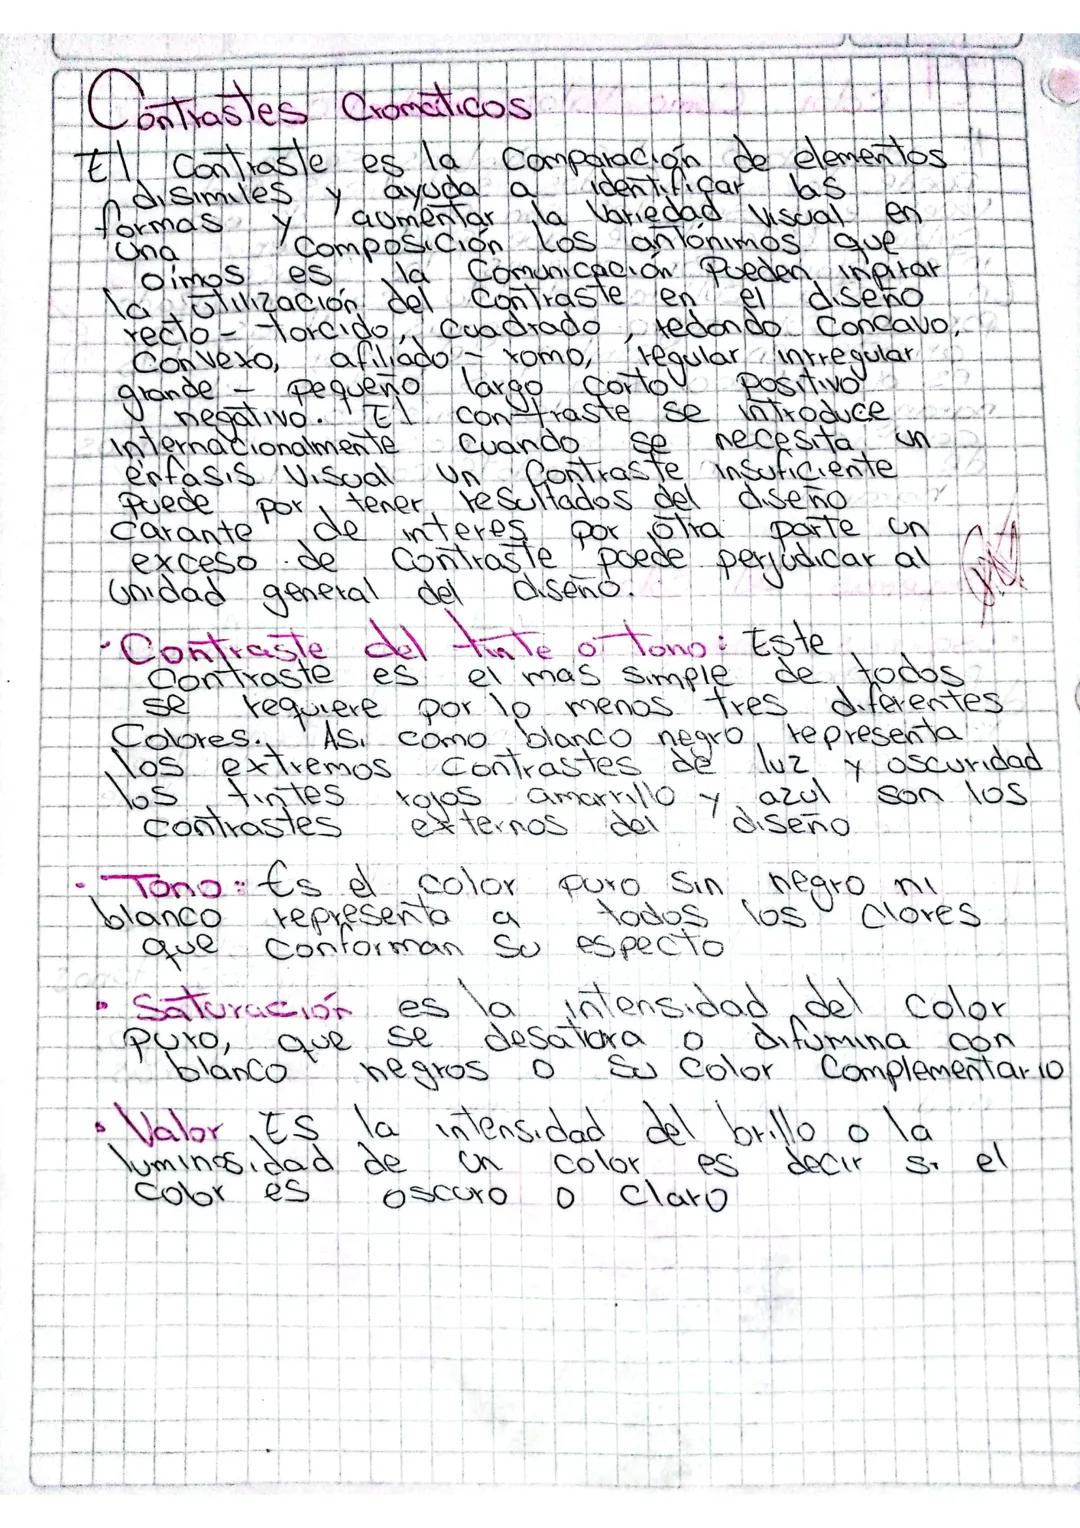 Contrastes Cromáticos
El Contraste es la Comparación de elementos
disimiles y ayuda a identificar las
formas y aumentar la Variedad visual en
una composición los antónimos que
oímos es la Comunicación Pueden inpirar
la utilización del contraste en el diseño
recto - torcido, cuadrado, redondo concavo,
Convexo, afiliado - romo, regular inrregular
grande - pequeño largo corto positivo
negativo. El contraste se introduce
internacionalmente cuando se necesita un
enfasis Visual un Contraste insuficiente
Puede por tener resultados del diseño
Carante de interes por otra parte un
exceso de Contraste puede perjudicar al
Unidad general del diseño.
• Contraste del tinte o Tono: Este
Contraste es el mas simple de todos
se requiere por lo menos tres diferentes
Colores. Asi como blanco negro representa
los extremos contrastes de luz y oscuridad
los tintes rojos amarrillo y azul son los
contrastes externos del diseño
• Tono: Es el color puro sin negro ni
blanco representa a todos los Clores
que conforman su espécto
• Saturación es la intensidad del color
Puro, que se desatura o difumina con
blanco negros o su color Complementario
• Valor Es la intensidad del brillo o la
luminosidad de un color es decir si el
color es oscuro o claro